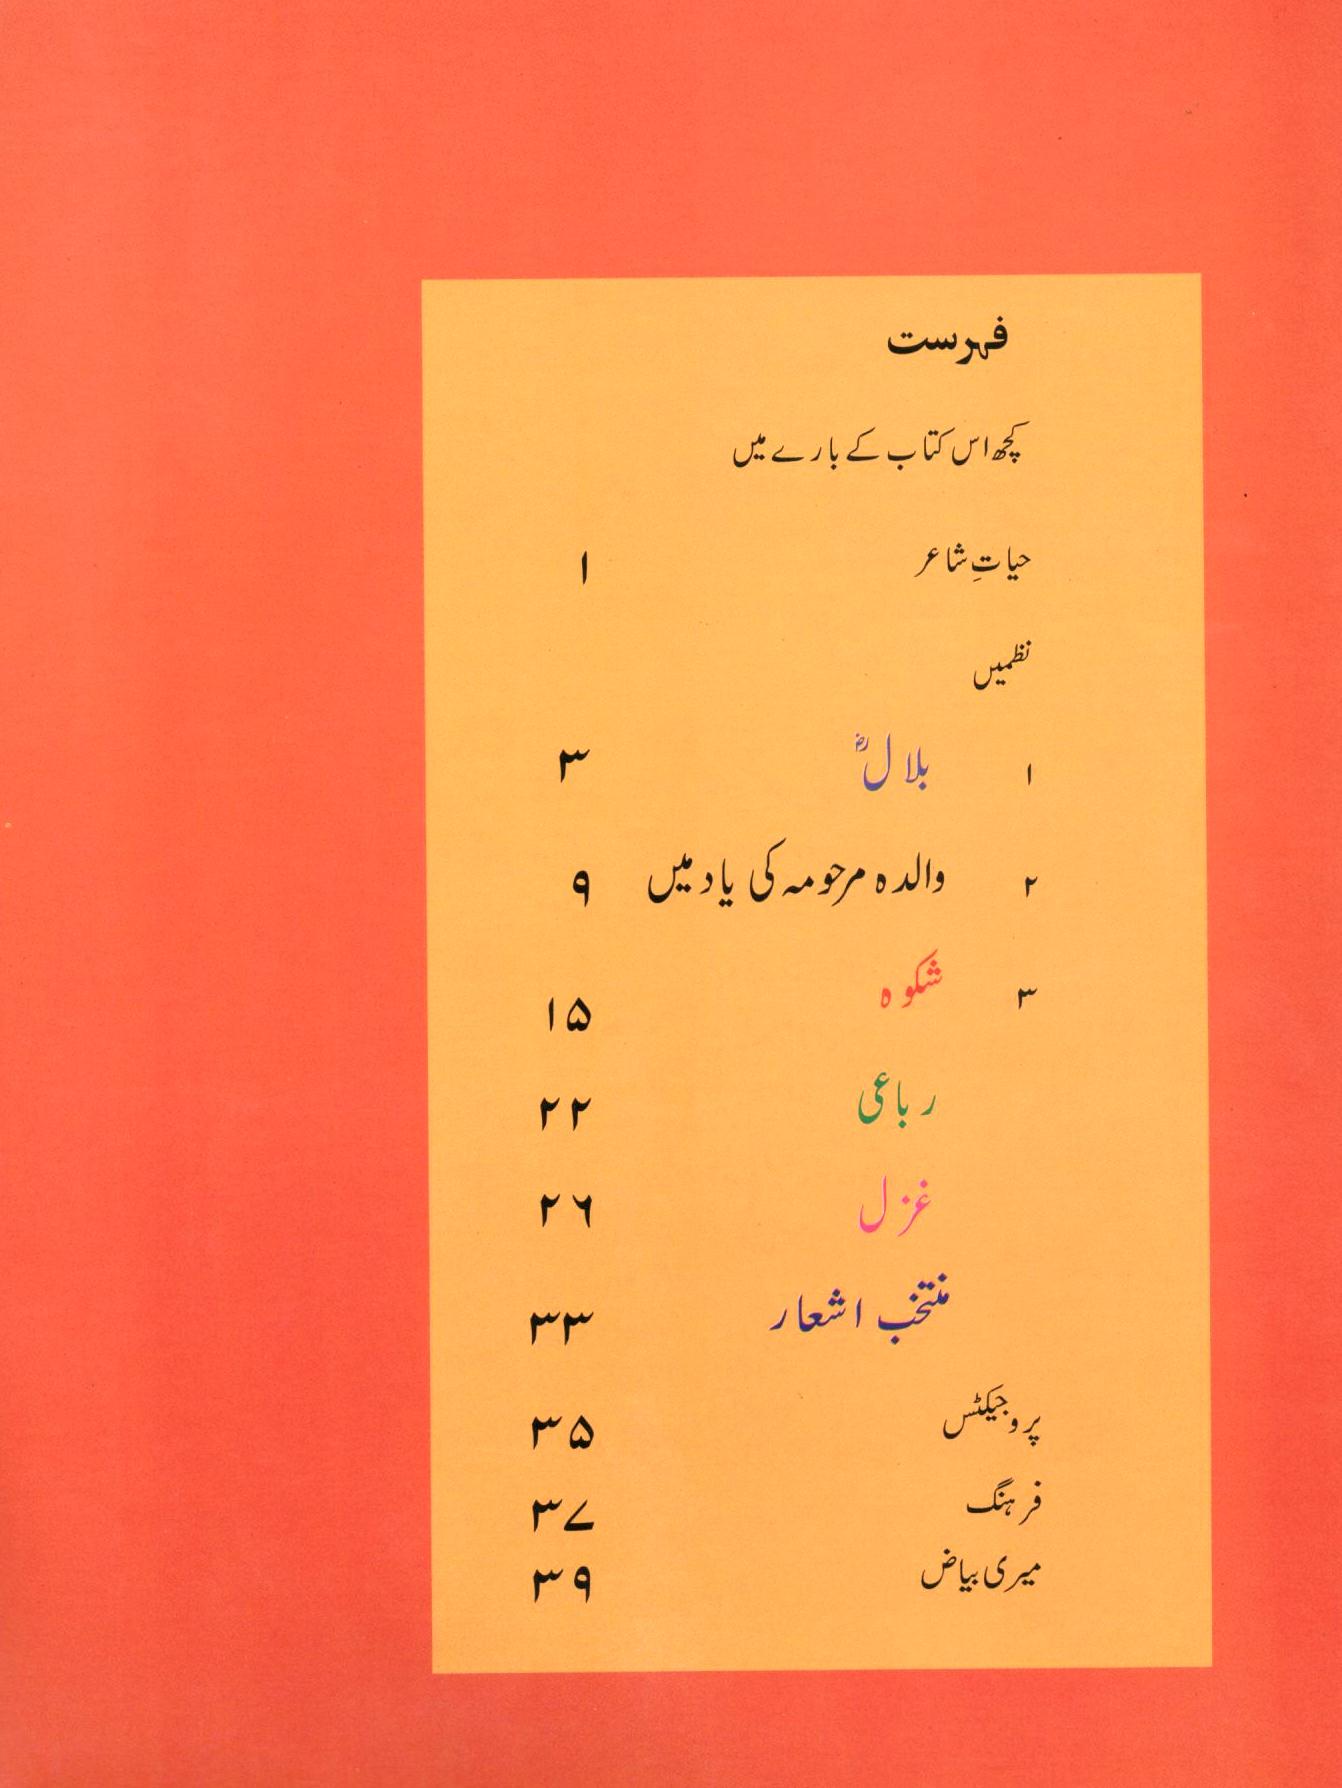 فہرست
کچھ اس کتاب کے بارے میں
حیاتِ شاعر ۱
نظمیں
۱ بلالؓ ۳
۲ والدہ مرحومہ کی یاد میں ۹
۳ شکوہ ۱۵
رباعی ۲۲
غزل ۲۶
منتخب اشعار ۳۳
پروجیکٹس ۳۵
فرہنگ ۳۷
میری بیاض ۳۹